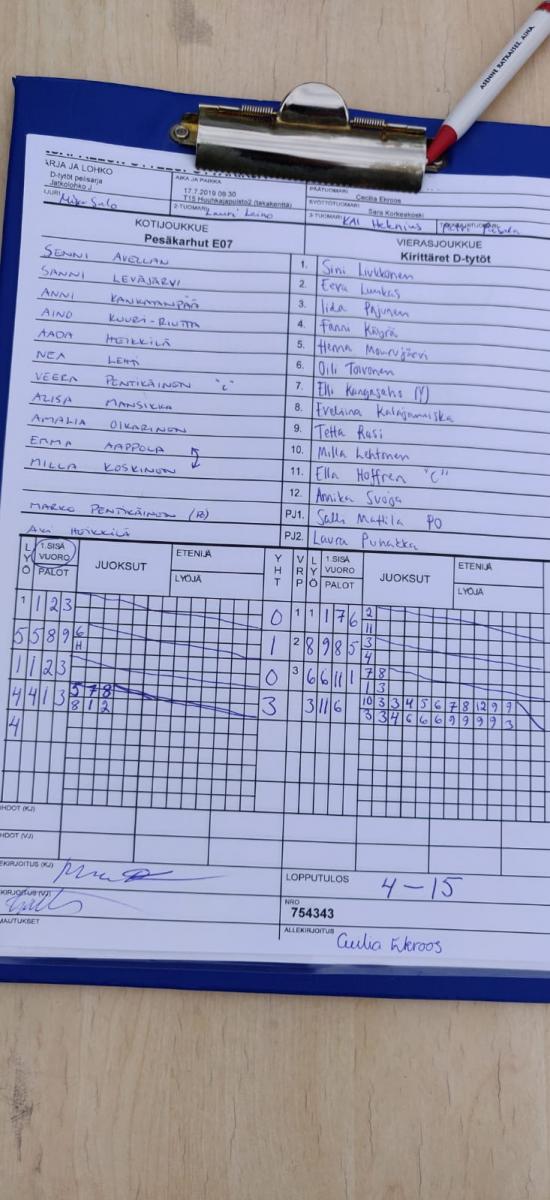 ASENNE RATKAISEE. AINA.
ARJA JA LOHKO
D-tytöt pelisarja
Jatkolohko J
AIKA JA PAIKKA
17.7.2019 09:30
T15 Huuhkajapuisto2 (takakenttä)
PÄÄTUOMARI
Cecilia Ekroos
SYÖTTÖTUOMARI
Sara Korkeakoski
2-TUOMARI
3-TUOMARI
KOTIJOUKKUE
Pesäkarhut E07
VIERASJOUKKUE
Kirittäret D-tytöt
SENNI AVELLAN
SANNI LEVÄJÄRVI
ANNI KANKAANPÄÄ
AINO KUURI-RIUTTA
AADA HEIKKILÄ
NEA LEHTI
VEERA PENTIKÄINEN "C"
ALISA MANSIKKA
AMALIA OIKARINEN
EMMA AAPPOLA
MILLA KOSKINEN
MARKO PENTIKÄINEN (P)
AKI HEIKKILÄ
1. Sini Liukkonen
2. Eeva Lunkas
3. Iida Pajunen
4. Fanni Käyrä
5. Henna Mourujärvi
6. Oili Toivonen
7. Elli Kangasaho
8. Eveliina Kalajanniska
9. Tetta Rasi
10. Milla Lehtonen
11. Ella Hoffren "C"
12. Annika Svoja
PJ1. Salla Mattila PO
PJ2. Laura Puhakka
LYÖ
1.SISÄ VUORO
PALOT
JUOKSUT
ETENIJÄ
LYÖJÄ
YHT
VRP
LYÖ
1.SISÄ VUORO
PALOT
JUOKSUT
ETENIJÄ
LYÖJÄ
1 1 2 3
0
1 1 1 7 6 2
11
5 5 8 9 6
H
1
2 8 9 8 5 3
4
1 1 2 3
0
3 6 6 11 1 7 8
1 3
4 4 1 3 5 7 8
8 1 2
3
3 11 6 10 3 3 4 5 6 7 8 12 9 9
3 3 4 6 6 6 9 9 9 9 3
4
HDOT (KJ)
HDOT (VJ)
EKIRJOITUS (KJ)
KIRJOITUS (VJ)
MAUTUKSET
LOPPUTULOS
4-15
NRO
754343
ALLEKIRJOITUS
Cecilia Ekroos